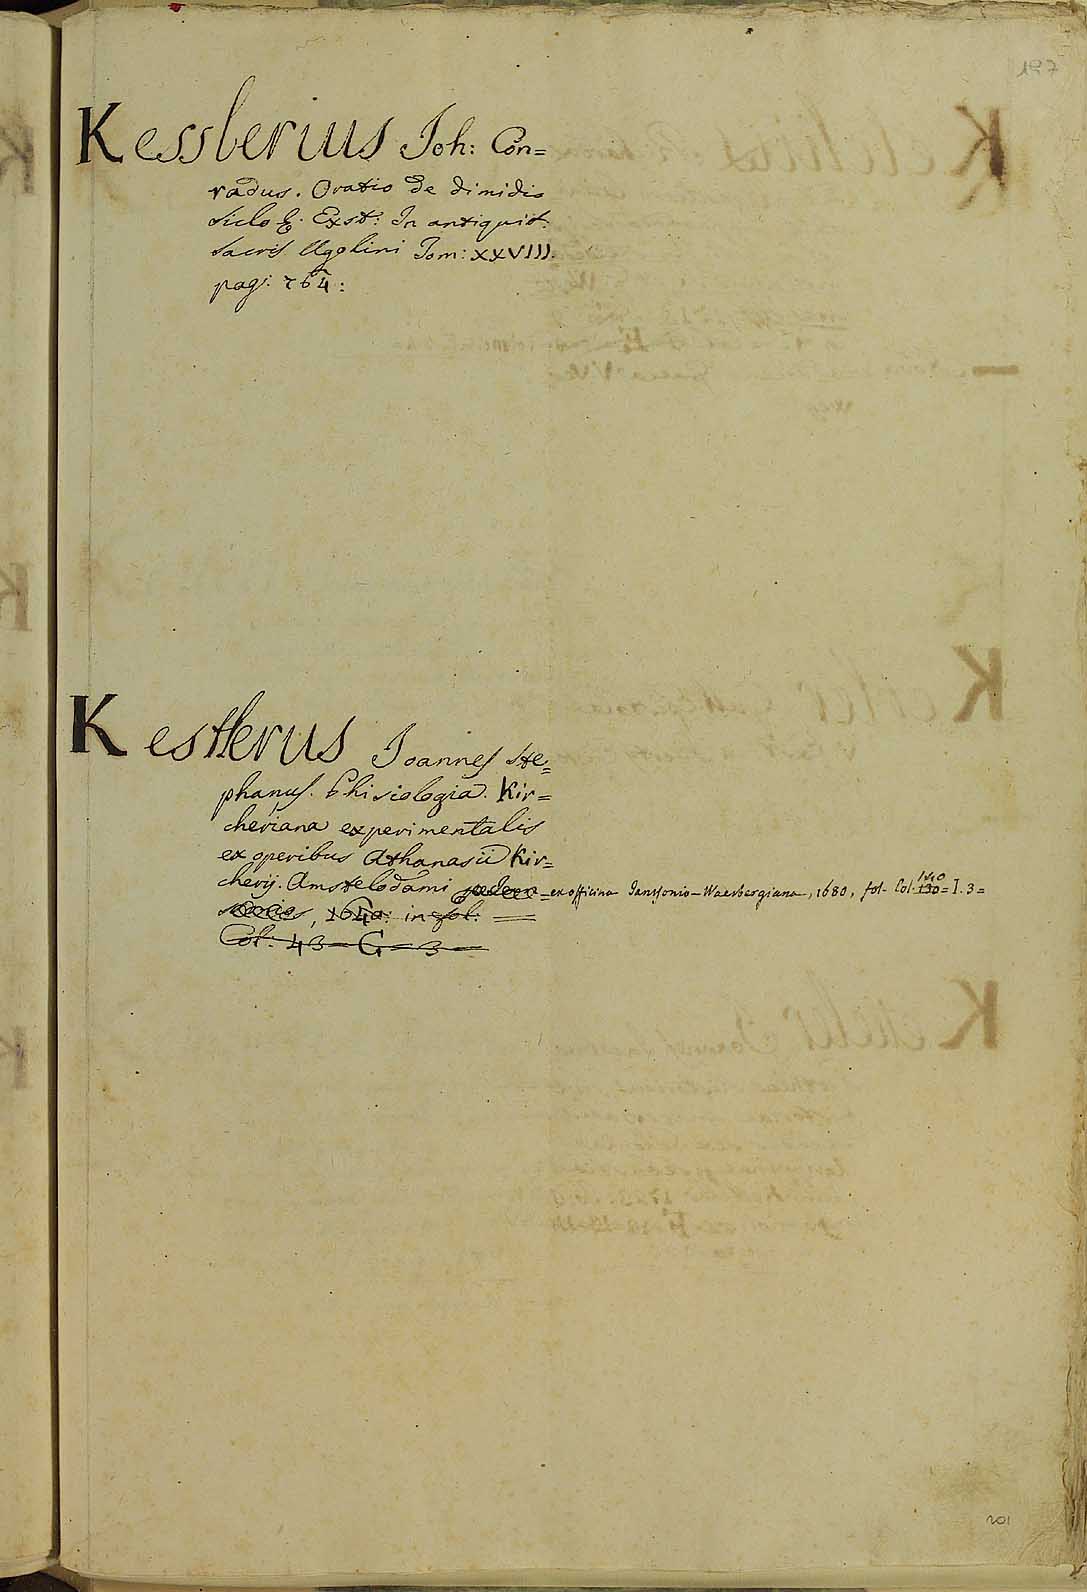 197
Kesslerius Joh: Con=
radus. Oratio de dimidio
siclo &. Exst: In antiquit:
sacris Ugolini Tom: XXVIII.
pag: 764:
Kestlerus Joannes Ste=
phanus. Phisiologia. Kir=
cheriana experimentalis
ex operibus Athanasii Kir=
cherij. Amstelodami = ex officina Janssonio-Waesbergiana, 1680, fol. Col. 130 140 = I. 3 =
, 1640: in fol:
Col: 43 = G = 3 =
201